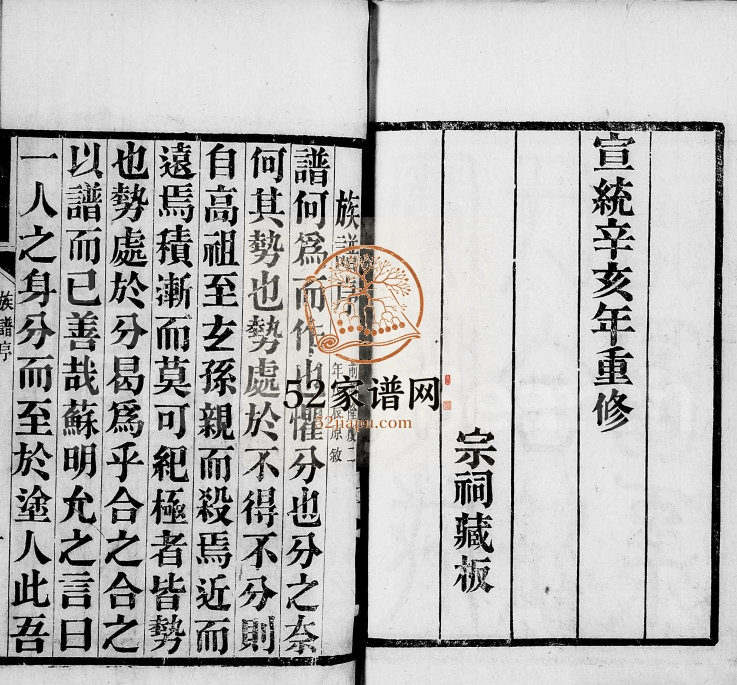 宣統辛亥年重修
宗祠藏板
族譜序
年 辰原敘
譜何爲而作也懼分也分之奈
何其勢也勢處於不得不分則
自高祖至玄孫親而殺焉近而
遠焉積漸而莫可紀極者皆勢
也勢處於分曷爲乎合之合之
以譜而已善哉蘇明允之言曰
一人之身分而至於塗人此吾
族譜序
52家谱网
52jiapu.com